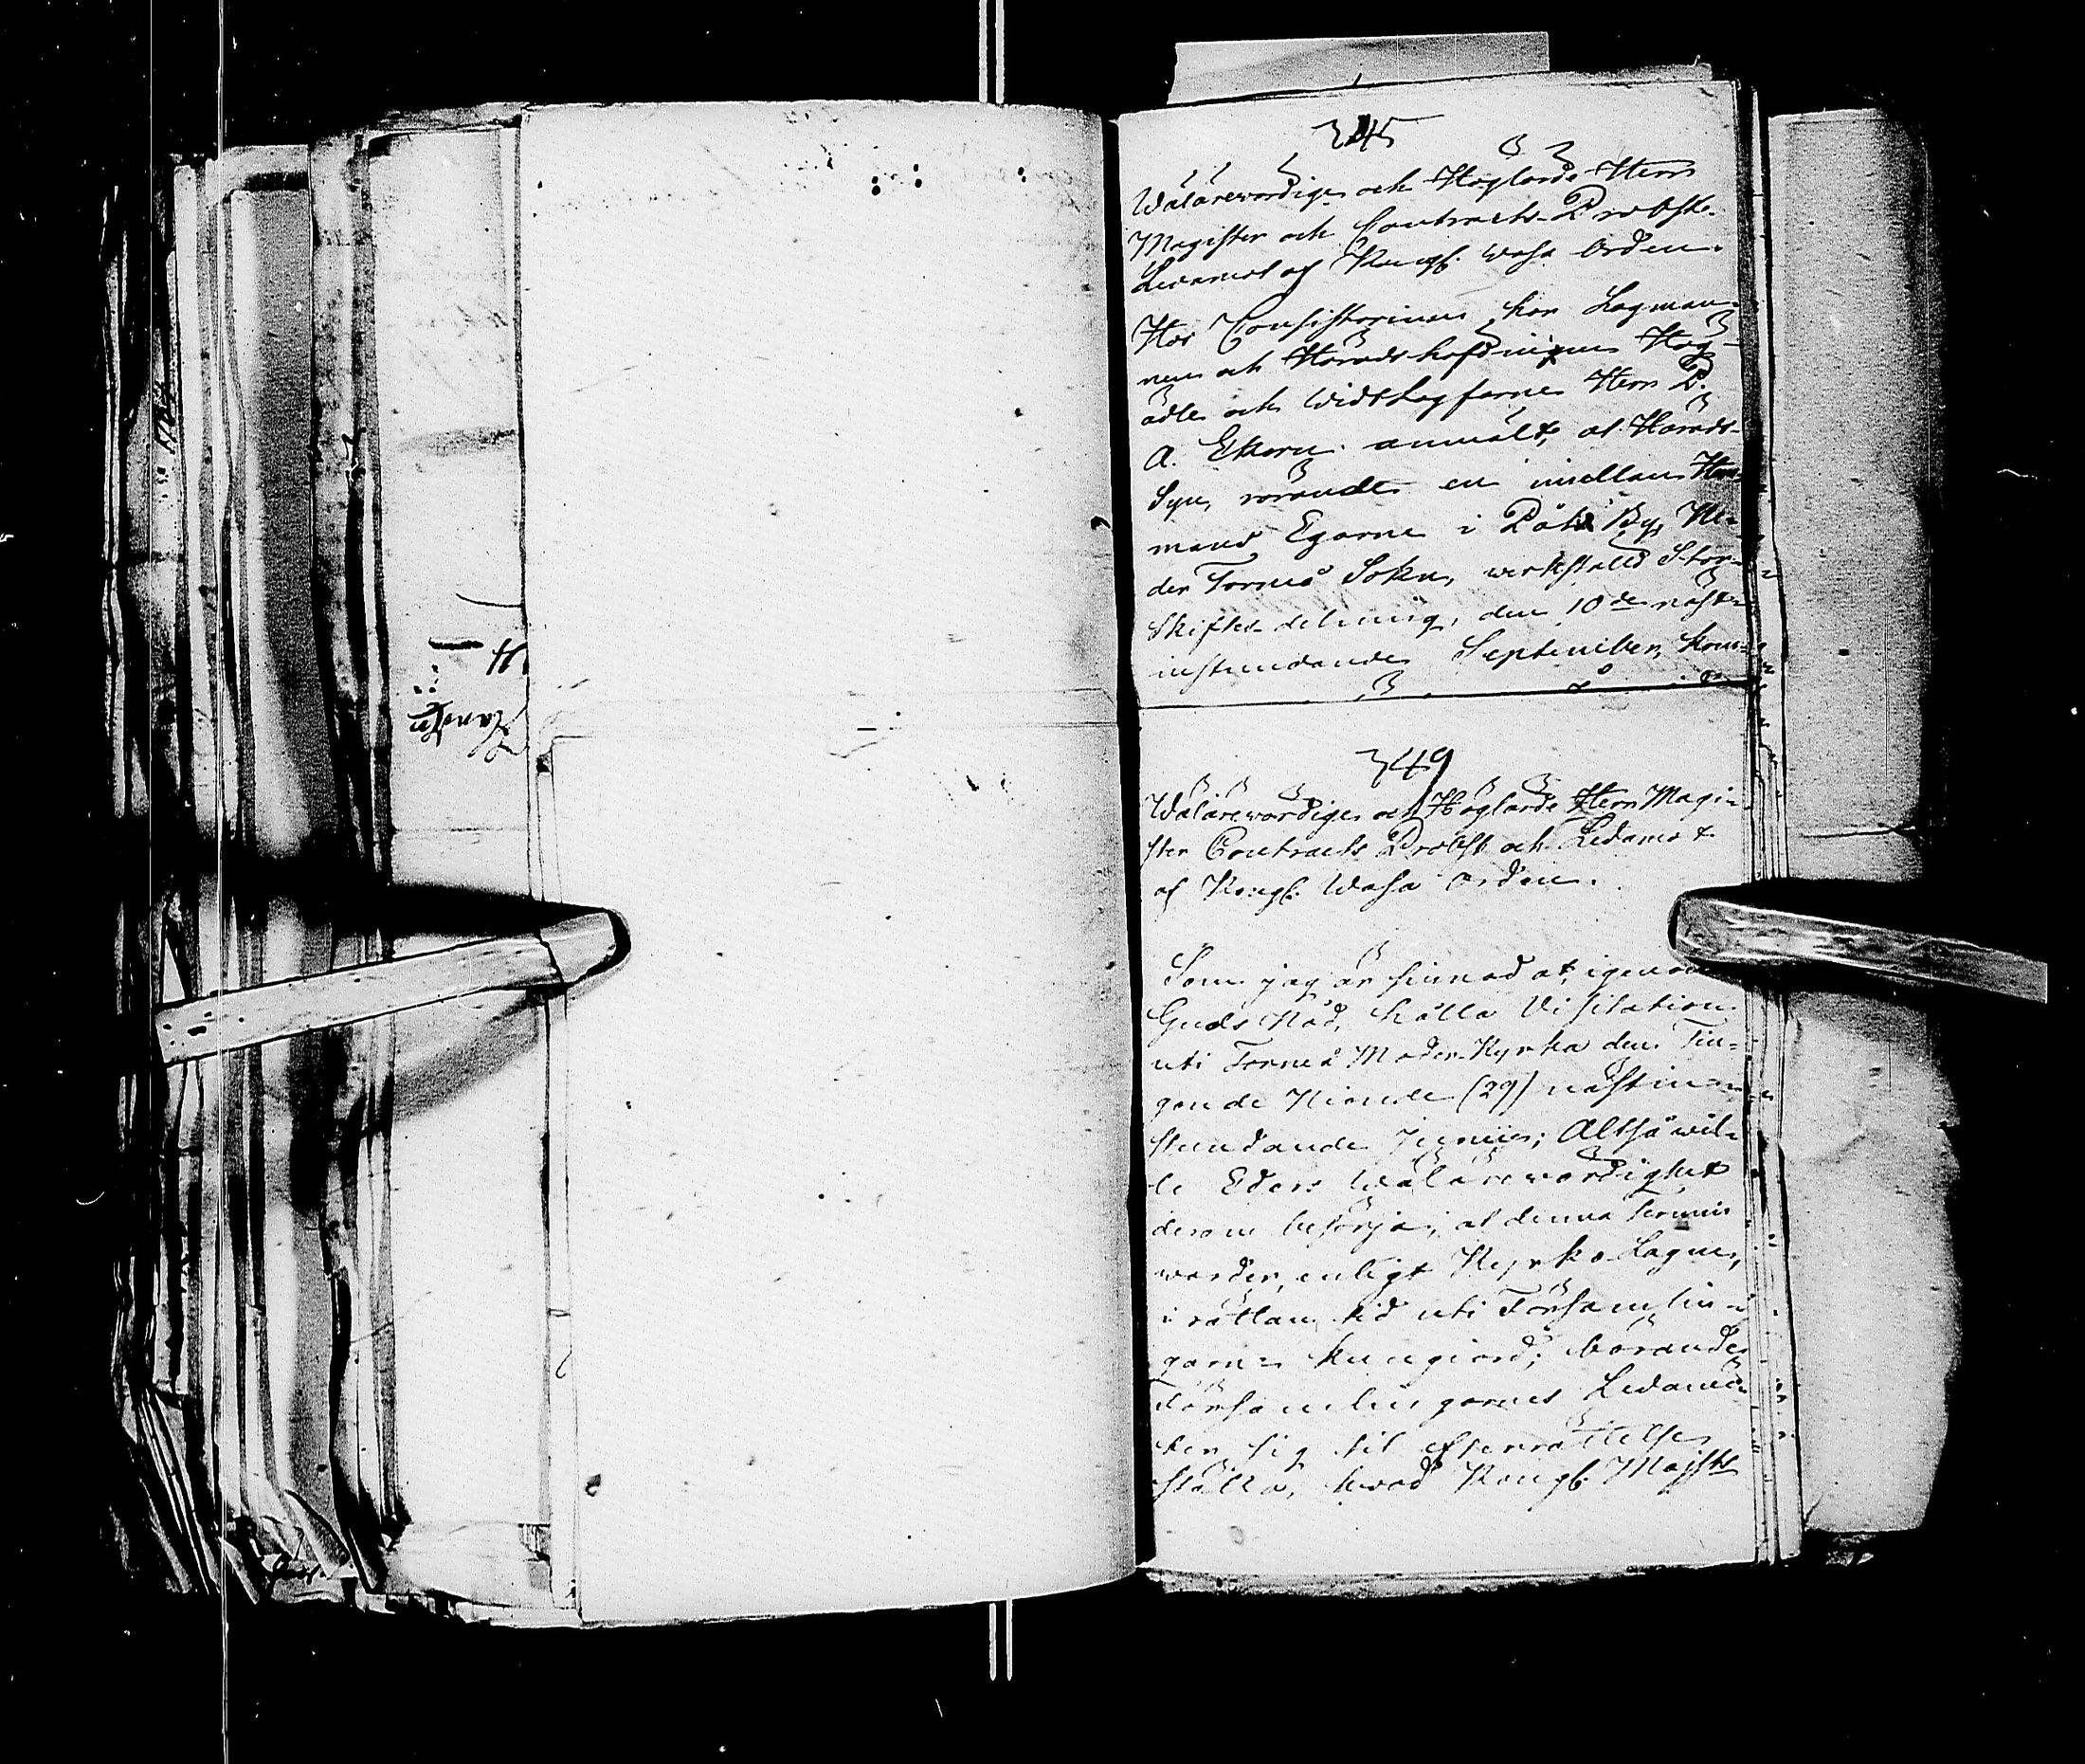 345
Wälärevördige och Höglärde Herr
Magister och Contracts-Probst
Ledamot af Kongl. Wasa Orden.
Hos Consistorium har Lagman-
nen och Häradshöfdingen Hög-
ädle och Widtlagfarne Herr P.
A. Ekorn anmält, at Härads-
Syn, rörande en imellan Hem-
mans Egarne i By, Ne-
der Torneå Sokn, werkstäld Stor-
Skiftes-delning, den 10de näst-
instundande September, kom-
349
Wälärevördige och Höglärde Herr Magi-
ster Contracts Probst och Ledamot
af Kongl. Wasa Orden.
Som jag är sinnad at, igenom
Guds Nåd, hålla Visitation
uti Torneå Moder-Kyrka den Tiu-
gonde Nionde (29) nästin-
stundande Junii; Altså wil-
le Eders Wälärevördighet
derom besörja, at denna Termin
warder, enligt Kyrko-Lagen,
i rättan tid uti Församlin-
garne kungiord; börandes
Församlingarnes Ledamö-
ter sig til efterrättelse
ställa, hwad Kongl. Majsts